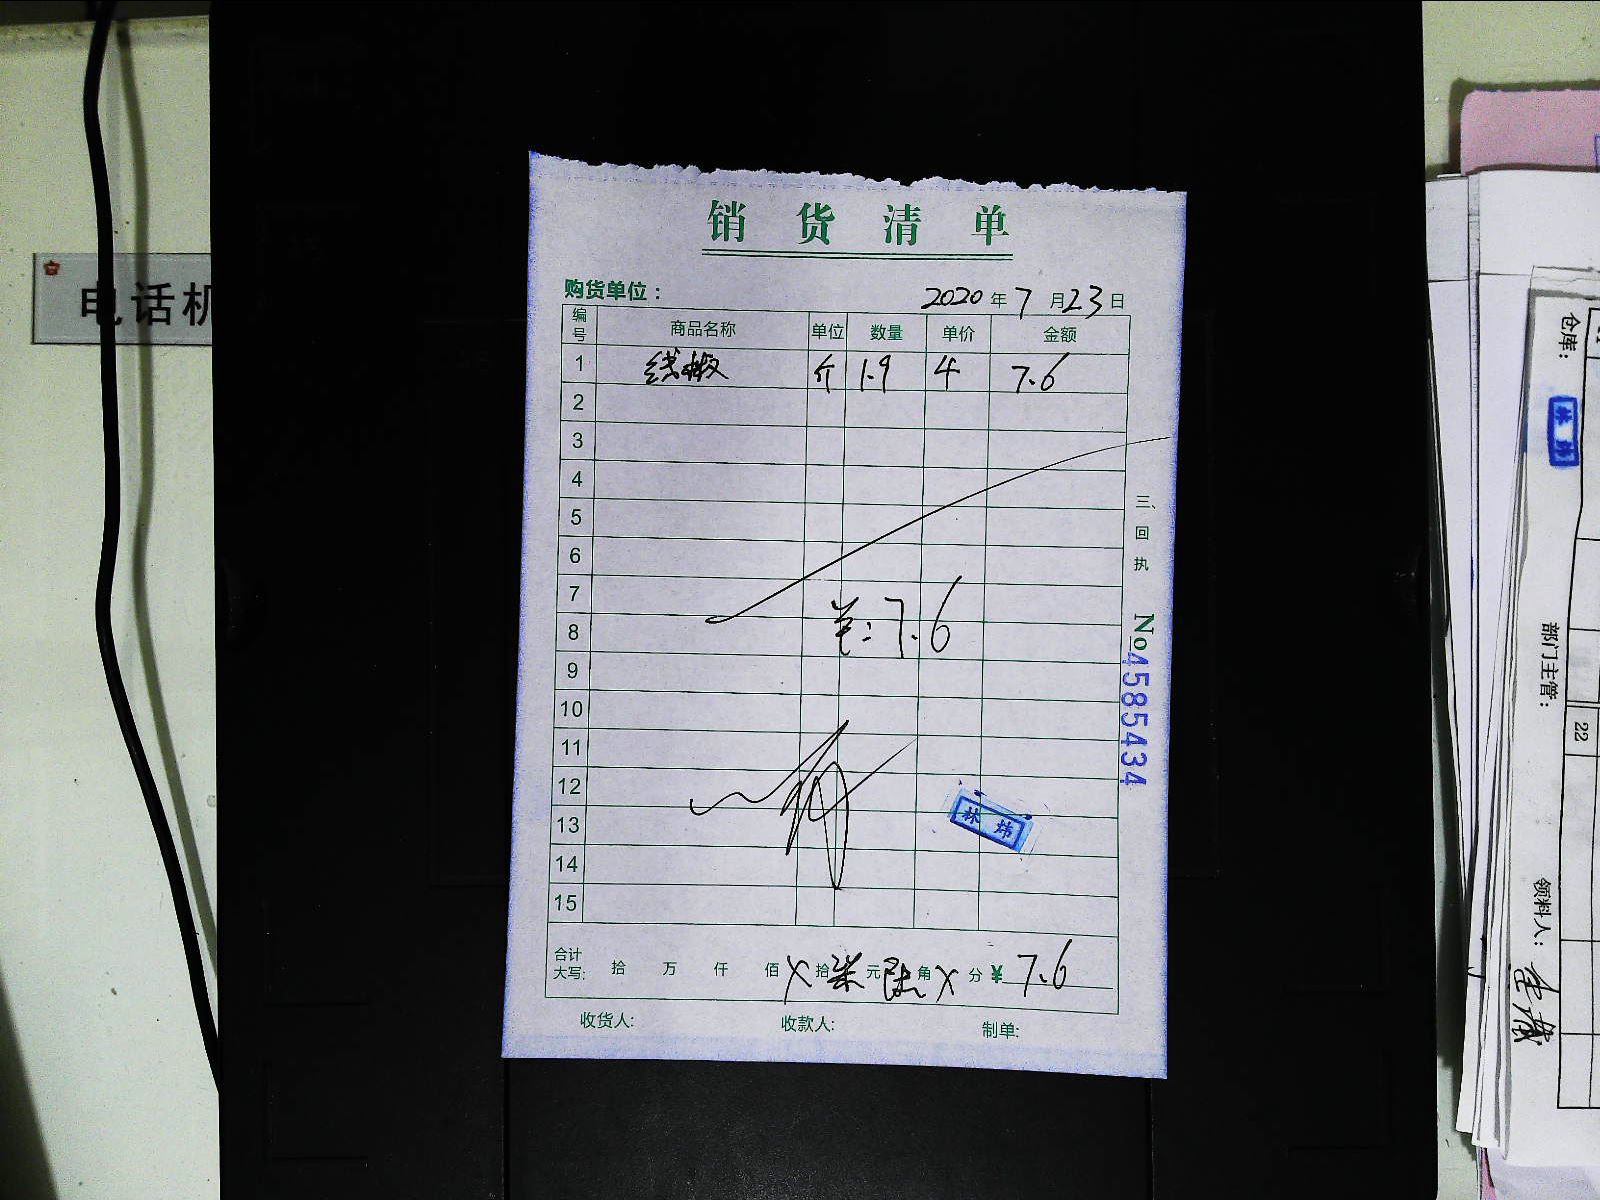 销货清单
购货单位： 2020年7月23日
编号 商品名称 单位 数量 单价 金额
1 线椒 斤 1.9 4 7.6
2
3
4
5
6
7
8
7.6
9
10
11
12
13
14
15
林炜
合计大写: 拾 万 仟 佰 X 拾 柒 元 陆 角 X 分 ¥ 7.6
收货人: 收款人: 制单:
三、回执
No 4585434
电话机
仓库:
部门主管:
22
领料人: